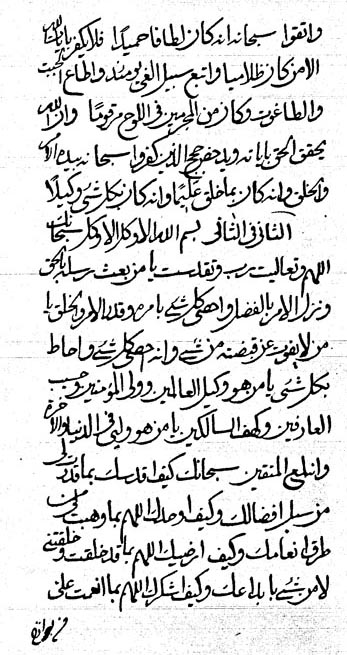 واتقوا سبحانه انه كان لطافا حميدا فلا يكفر بايات الله
الا من كان ظلاميا واتبع سبيل الغي يومئذ واطاع الجبت
والطاغوت وكان من المجرمين في اللوح مرقوما وان الله
يحقق الحق باياته ويدحض حجج الذين كفروا سبحانه بيده الامر
والخلق وانه كان بما خلق عليما وانه كان بكل شيء وكيلا
الثاني في الثاني بسم الله الاوكل الاوكل سبحانك
اللهم وتعاليت رب وتقدست يا من بعث رسله بالحق
ونزل الامر بالفضل واحصى كل شيء بامره وقدر الامر والخلق يا
من لا يفوت عن قبضته من شيء وانه حصى كل شيء واحاط
بكل شيء يا من هو وكيل العالمين وولى المؤمنين وحبيب
العارفين وكهف السالكين يا من هو وليي في الدنيا والاخرة
سبحانك كيف اقدسك بما قدرت لى
من سبل افضالك وكيف اوحدك اللهم بما وهبت
طرق انعامك وكيف ارضيك اللهم بما قد خلقت وخلقتنى
لا من شيء بابداعك وكيف اشكرك اللهم بما انعمت على